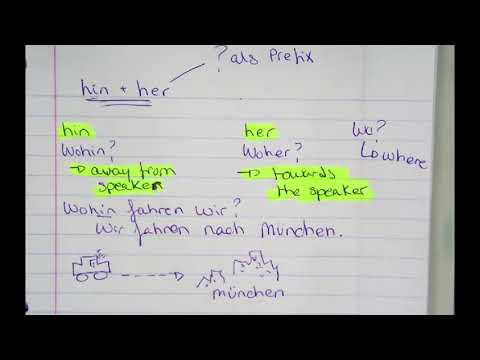 ? als Prefix
hin + her
hin her Wo?
Wohin? Woher? ↳ where
→ away from → towards
speaker the speaker
Wohin fahren wir?
Wir fahren nach München.
münchen